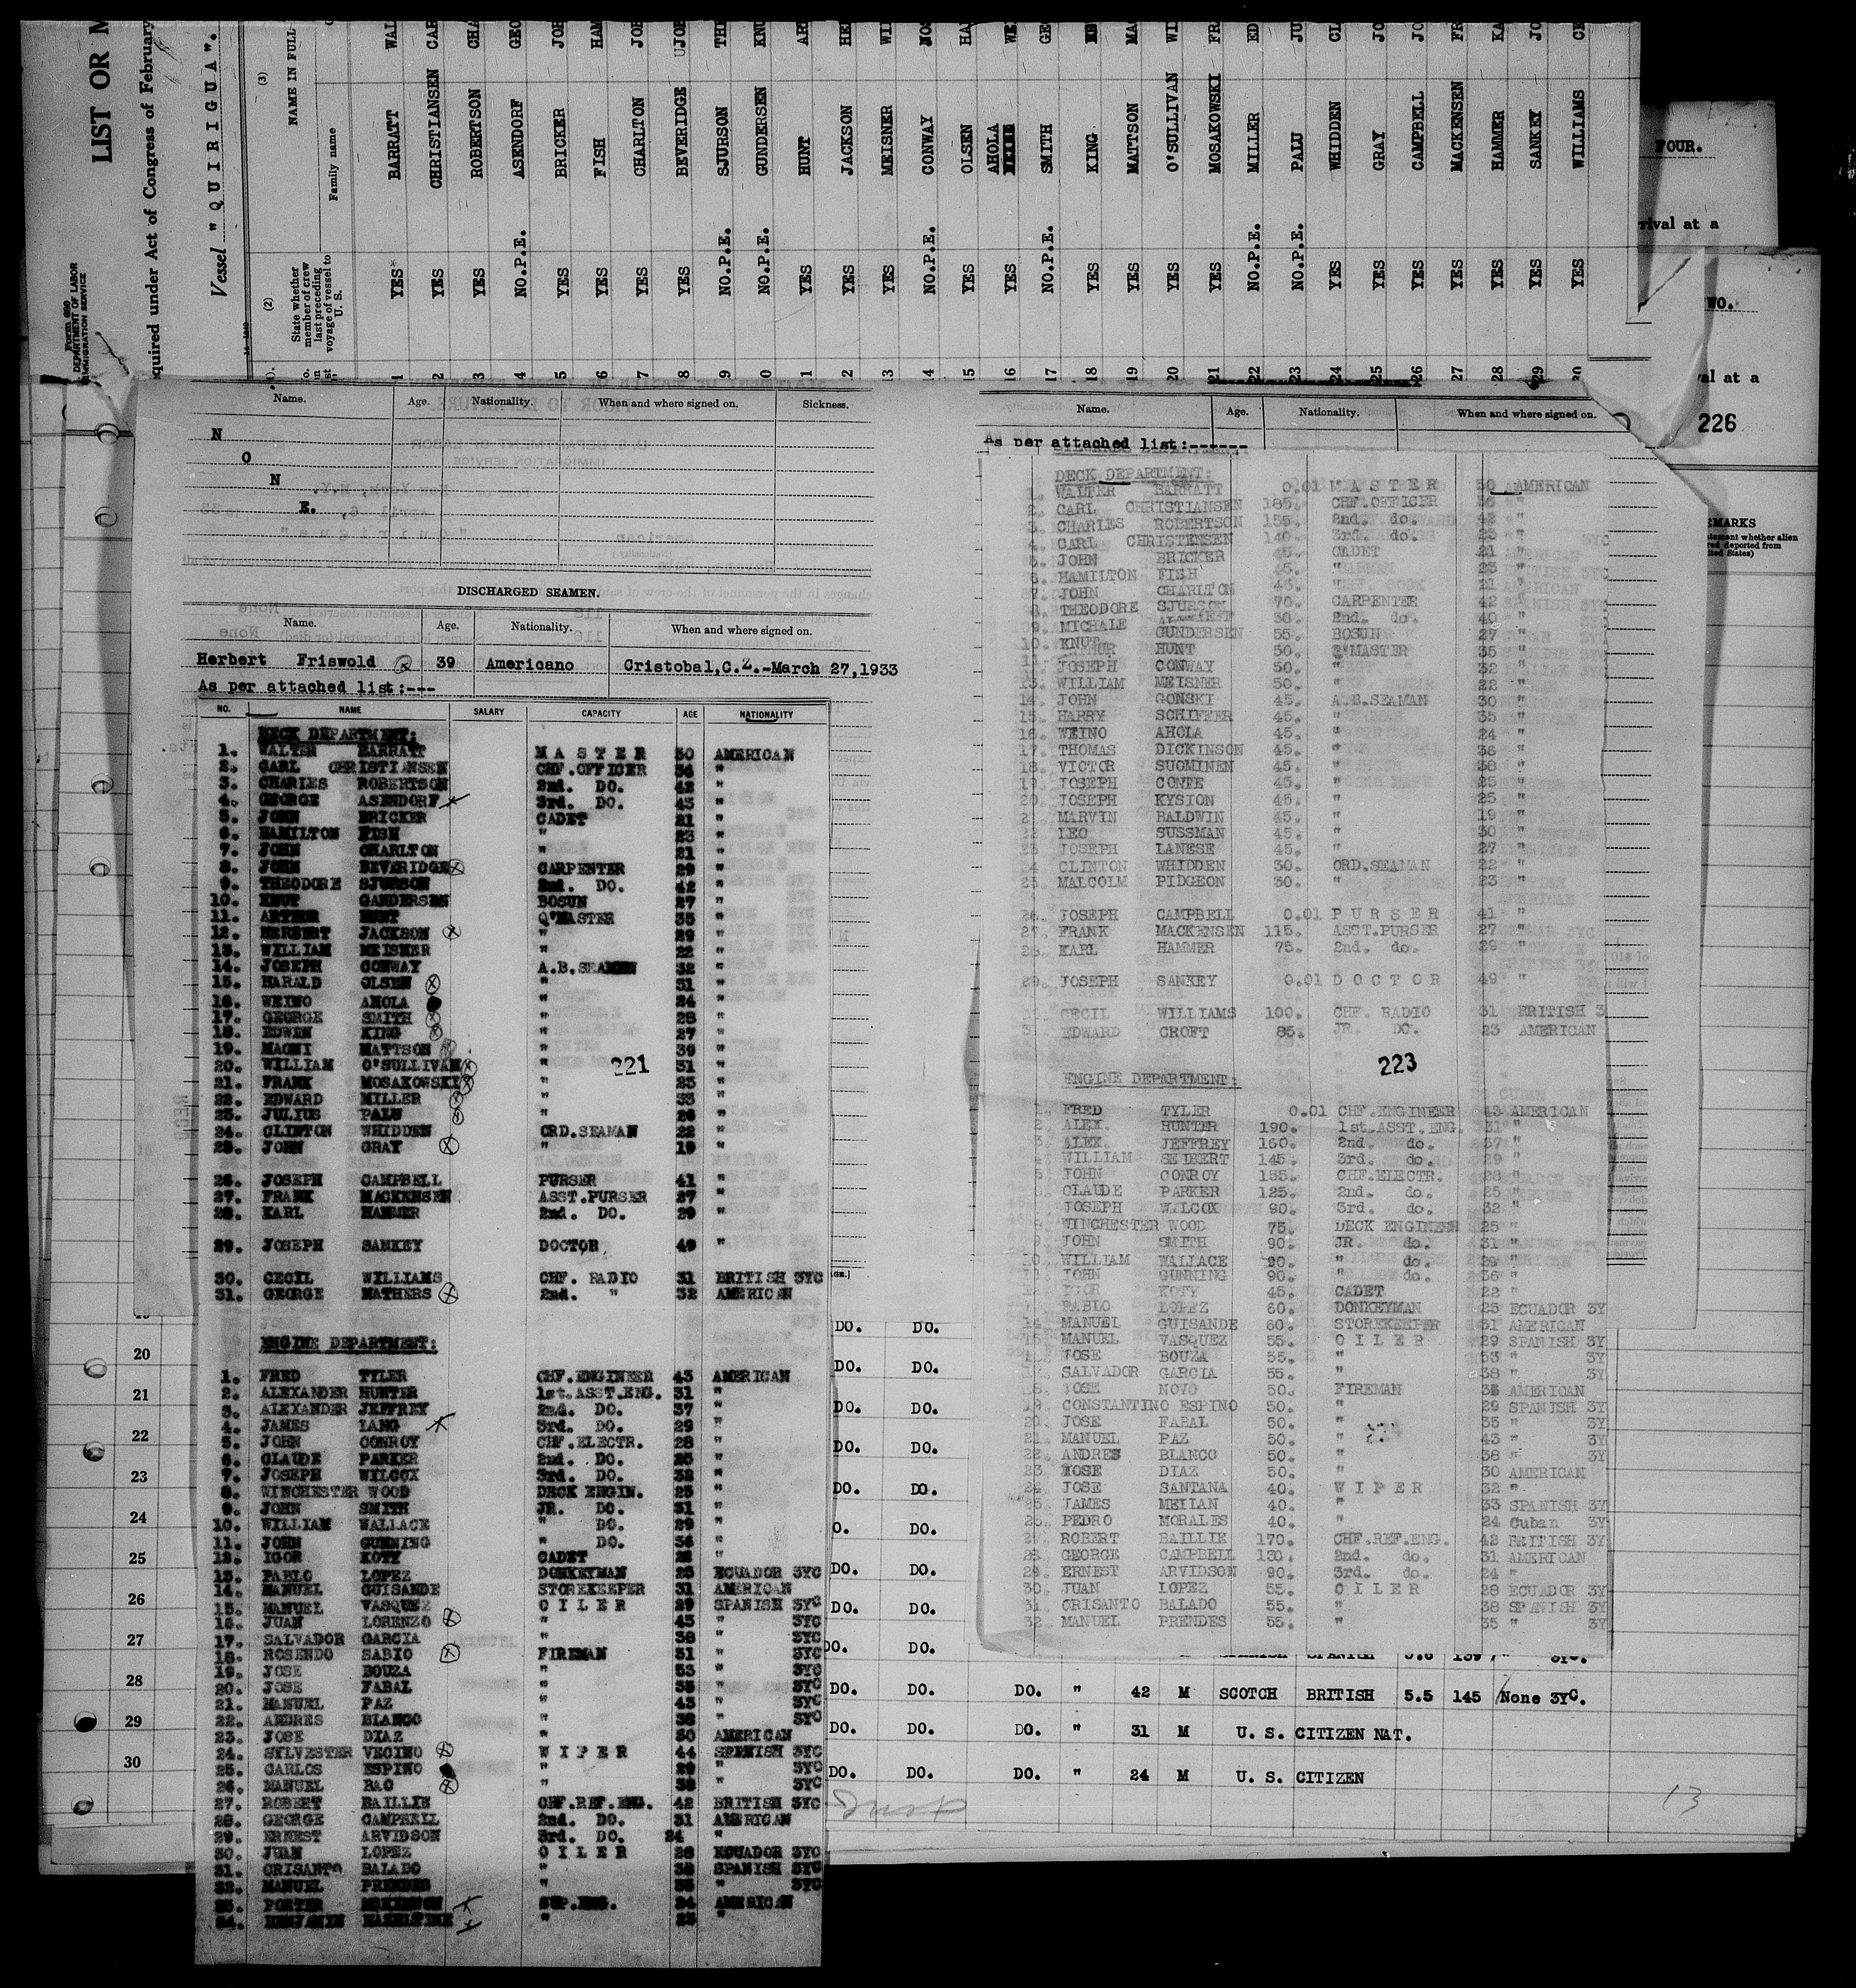 LIST OR M
equired under Act of Congress of February
Vessel "QUIRIGUA".
Form 689
DEPARTMENT OF LABOR
IMMIGRATION SERVICE
(3)
NAME IN FULL
Family name
(2)
State whether member of crew last preceding voyage of vessel to U. S.
1 YES BARRATT WAL
2 YES CHRISTIANSEN CAR
3 YES ROBERTSON CHA
4 NO.P.E. ASENDORF GEO
5 YES BRICKER JOH
6 YES FISH HAM
7 YES CHARLTON JOH
8 YES BEVERIDGE JOH
9 NO.P.E. SJURSON THE
0 NO.P.E. GUNDERSEN KNU
1 YES HUNT AR
2 YES JACKSON HE
13 YES MEISNER WI
14 NO.P.E. CONWAY JOS
15 YES OLSEN HA
16 YES AHOLA WE
17 NO.P.E. SMITH GE
18 YES KING
19 YES MATTSON MA
20 YES O'SULLIVAN WI
21 YES MOSAKOWSKI FR
22 NO.P.E. MILLER ED
23 NO.P.E. PALU JU
24 YES WHIDDEN CL
25 YES GRAY JO
26 YES CAMPBELL JO
27 YES MACKENSEN FR
28 YES HAMMER KA
29 YES SANKEY JO
30 YES WILLIAMS CE
FOUR.
rival at a
WO.
val at a
226
EMARKS
Name. Age. Nationality. When and where signed on. Sickness.
N
O
N
E.
DISCHARGED SEAMEN.
Name. Age. Nationality. When and where signed on.
Herbert Friswold 39 Americano Cristobal,C.Z.-March 27,1933
As per attached list:---
NO. NAME SALARY CAPACITY AGE NATIONALITY
DECK DEPARTMENT:
1. WALTER BARRATT MASTER 50 AMERICAN
2. CARL CHRISTIANSEN CHF.OFFICER 36 "
3. CHARLES ROBERTSON 2nd. DO. 42 "
4. GEORGE ASENDORF 3rd. DO. 43 "
5. JOHN BRICKER CADET 21 "
6. HAMILTON FISH " 23 "
7. JOHN CHARLTON " 21 "
8. JOHN BEVERIDGE CARPENTER 29 "
9. THEODORE SJURSON 2nd. DO. 42 "
10. KNUT GANDERSEN BOSUN 27 "
11. ARTHUR HUNT Q'MASTER 35 "
12. HERBERT JACKSON " 29 "
13. WILLIAM MEISNER " 22 "
14. JOSEPH CONWAY A.B.SEAMEN 32 "
15. HARALD OLSEN " 31 "
16. WEINO AHOLA " 24 "
17. GEORGE SMITH " 28 "
18. EDWIN KING " 27 "
19. MAGNI MATTSON " 39 "
20. WILLIAM O'SULLIVAN " 31 "
221
21. FRANK MOSAKOWSKI " 25 "
22. EDWARD MILLER " 33 "
23. JULIUS PALU " 26 "
24. CLINTON WHIDDEN ORD.SEAMAN 22 "
25. JOHN GRAY " 19 "
26. JOSEPH CAMPBELL PURSER 41 "
27. FRANK MACKENSEN ASST.PURSER 27 "
28. KARL HAMMER 2nd. DO. 29 "
29. JOSEPH SANKEY DOCTOR 49 "
30. CECIL WILLIAMS CHF. RADIO 31 BRITISH 3YC
31. GEORGE MATHERS 2nd. " 32 AMERICAN
ENGINE DEPARTMENT:
1. FRED TYLER CHF.ENGINEER 43 AMERICAN
2. ALEXANDER HUNTER 1st.ASST.ENG. 31 "
3. ALEXANDER JEFFREY 2nd. DO. 37 "
4. JAMES LANG 3rd. DO. 29 "
5. JOHN CONROY CHF.ELECTR. 28 "
6. CLAUDE PARKER 2nd. DO. 25 "
7. JOSEPH WILCOX 3rd. DO. 32 "
8. WINCHESTER WOOD DECK ENGIN. 25 "
9. JOHN SMITH JR. DO. 31 "
10. WILLIAM WALLACE " DO. 29 "
11. JOHN GUNNING " DO. 36 "
12. IGOR KOTY CADET 22 "
13. PABLO LOPEZ DONKEYMAN 25 ECUADOR 3YC
14. MANUEL GUISANDE STOREKEEPER 31 AMERICAN
15. MANUEL VASQUEZ OILER 29 SPANISH 3YC
16. JUAN LORENZO " 43 " 3YC
17. SALVADOR GARCIA " 38 " 3YC
18. ROSENDO SABIO FIREMAN 31 " 3YC
19. JOSE BOUZA " 53 " 3YC
20. JOSE FABAL " 35 " 3YC
21. MANUEL PAZ " 43 " 3YC
22. ANDRES BLANCO " 38 " 3YC
23. JOSE DIAZ " 30 AMERICAN
24. SYLVESTER VECINO WIPER 44 SPANISH 3YC
25. CARLOS ESPINO " 29 " 3YC
26. MANUEL BAO " 38 " 3YC
27. ROBERT BAILLIE CHF.REF.ENG. 42 BRITISH 3YC
28. GEORGE CAMPBELL 2nd. DO. 31 AMERICAN
29. ERNEST ARVIDSON 3rd. DO. 24 "
30. JUAN LOPEZ OILER 28 ECUADOR 3YC
31. CRISANTO BALADO " 38 SPANISH 3YC
32. MANUEL PRENDES " 35 " 3YC
33. PORTER SUP.ENG. 24 AMERICAN
34. BENJAMIN HAZELTINE " 23 "
Name. Age. Nationality. When and where signed on.
As per attached list:------
DECK DEPARTMENT:
1. WALTER BARRATT 0.01 MASTER 50 AMERICAN
2. CARL CHRISTIANSEN 185. CHF.OFFICER 36 "
3. CHARLES ROBERTSON 155. 2nd. do. 42 "
4. CARL CHRISTENSEN 140. 3rd. do. 25 "
5. JOHN BRICKER 45. CADET 21 "
6. HAMILTON FISH 45. " 23 "
7. JOHN CHARLTON 45. " 21 "
8. THEODORE SJURSON 70. CARPENTER 42 "
9. MICHALE 30. 2nd. do. 40 "
10. KNUT GUNDERSEN 55. BOSUN 27 "
11. HUNT 50. Q'MASTER 35 "
JOSEPH CONWAY 50. " 32 "
13. WILLIAM MEISNER 50. " 22 "
14. JOHN GONSKI 45. A.B.SEAMAN 30 "
15. HARRY SCHIFFER 45. " 35 "
16. WEINO AHOLA 45. " 24 "
17. THOMAS DICKINSON 45. " 36 "
18. VICTOR SUOMINEN 45. " 38 "
19. JOSEPH CONFE 45. " 25 "
20. JOSEPH KYSION 45. " 25 "
21. MARVIN BALDWIN 45. " 19 "
22. LEO SUSSMAN 45. " 30 "
23. JOSEPH LANESE 45. " 27 "
24. CLINTON WHIDDEN 30. ORD.SEAMAN 22 "
25. MALCOLM PIDGEON 30. " 23 "
26. JOSEPH CAMPBELL 0.01 PURSER 41 "
27. FRANK MACKENSEN 115. ASST.PURSER 27 "
28. KARL HAMMER 75. 2nd. do. 29 "
29. JOSEPH SANKEY 0.01 DOCTOR 49 "
CECIL WILLIAMS 100. CHF. RADIO 31 BRITISH 3
EDWARD CROFT 85. JR. DO. 23 AMERICAN
223
ENGINE DEPARTMENT:
1. FRED TYLER 0.01 CHF.ENGINEER 43 AMERICAN
2. ALEX. HUNTER 190. 1st.ASST.ENG. 31 "
3. ALEX. JEFFREY 160. 2nd. do. 37 "
4. WILLIAM SEIBERT 145. 3rd. do. 29 "
5. JOHN CONROY 155. CHF.ELECTR. 28 "
CLAUDE PARKER 125. 2nd. do. 25 "
JOSEPH WILCOX 90. 3rd. do. 32 "
8. WINCHESTER WOOD 75. DECK ENGINEER 25 "
9. JOHN SMITH 90. JR. do. 31 "
10. WILLIAM WALLACE 90. " do. 29 "
11. JOHN GUNNING 90. " do. 36 "
IGOR KOTY 45. CADET 22 "
PABLO LOPEZ 60. DONKEYMAN 25 ECUADOR 3Y
14. MANUEL GUISANDE 60. STOREKEEPER 31 AMERICAN
15. MANUEL VASQUEZ 55. OILER 29 SPANISH 3Y
JOSE BOUZA 55. " 53 " 3Y
SALVADOR GARCIA 55. " 38 " 3Y
18. JOSE NOVO 50. FIREMAN 35 AMERICAN
19. CONSTANTINO ESPINO 50. " 29 SPANISH 3Y
20. JOSE FABAL 50. " 35 " 3Y
21. MANUEL PAZ 50. " 43 " 3Y
22. ANDRES BLANCO 50. " 38 " 3Y
23. JOSE DIAZ 50. " 30 AMERICAN
24. JOSE SANTANA 40. WIPER 32 "
25. JAMES MEILAN 40. " 33 SPANISH 3Y
26. PEDRO MORALES 40. " 24 Cuban 3Y
27. ROBERT BAILLIE 170. CHF.REF.ENG. 42 BRITISH 3Y
28. GEORGE CAMPBELL 130. 2nd. do. 31 AMERICAN
29. ERNEST ARVIDSON 90. 3rd. do. 24 "
30. JUAN LOPEZ 55. OILER 28 ECUADOR 3Y
31. CRISANTO BALADO 55. " 38 SPANISH 3Y
32. MANUEL PRENDES 55. " 35 " 3Y
20 DO. DO.
21 DO. DO.
22 DO. DO.
23 DO. DO.
24 O. DO.
25 DO. DO.
26 DO. DO.
27 DO. DO.
28 DO. DO. DO. " 42 M SCOTCH BRITISH 5.5 145 None 3YC.
29 DO. DO. DO. " 31 M U. S. CITIZEN NAT.
30 DO. DO. DO. " 24 M U. S. CITIZEN
13